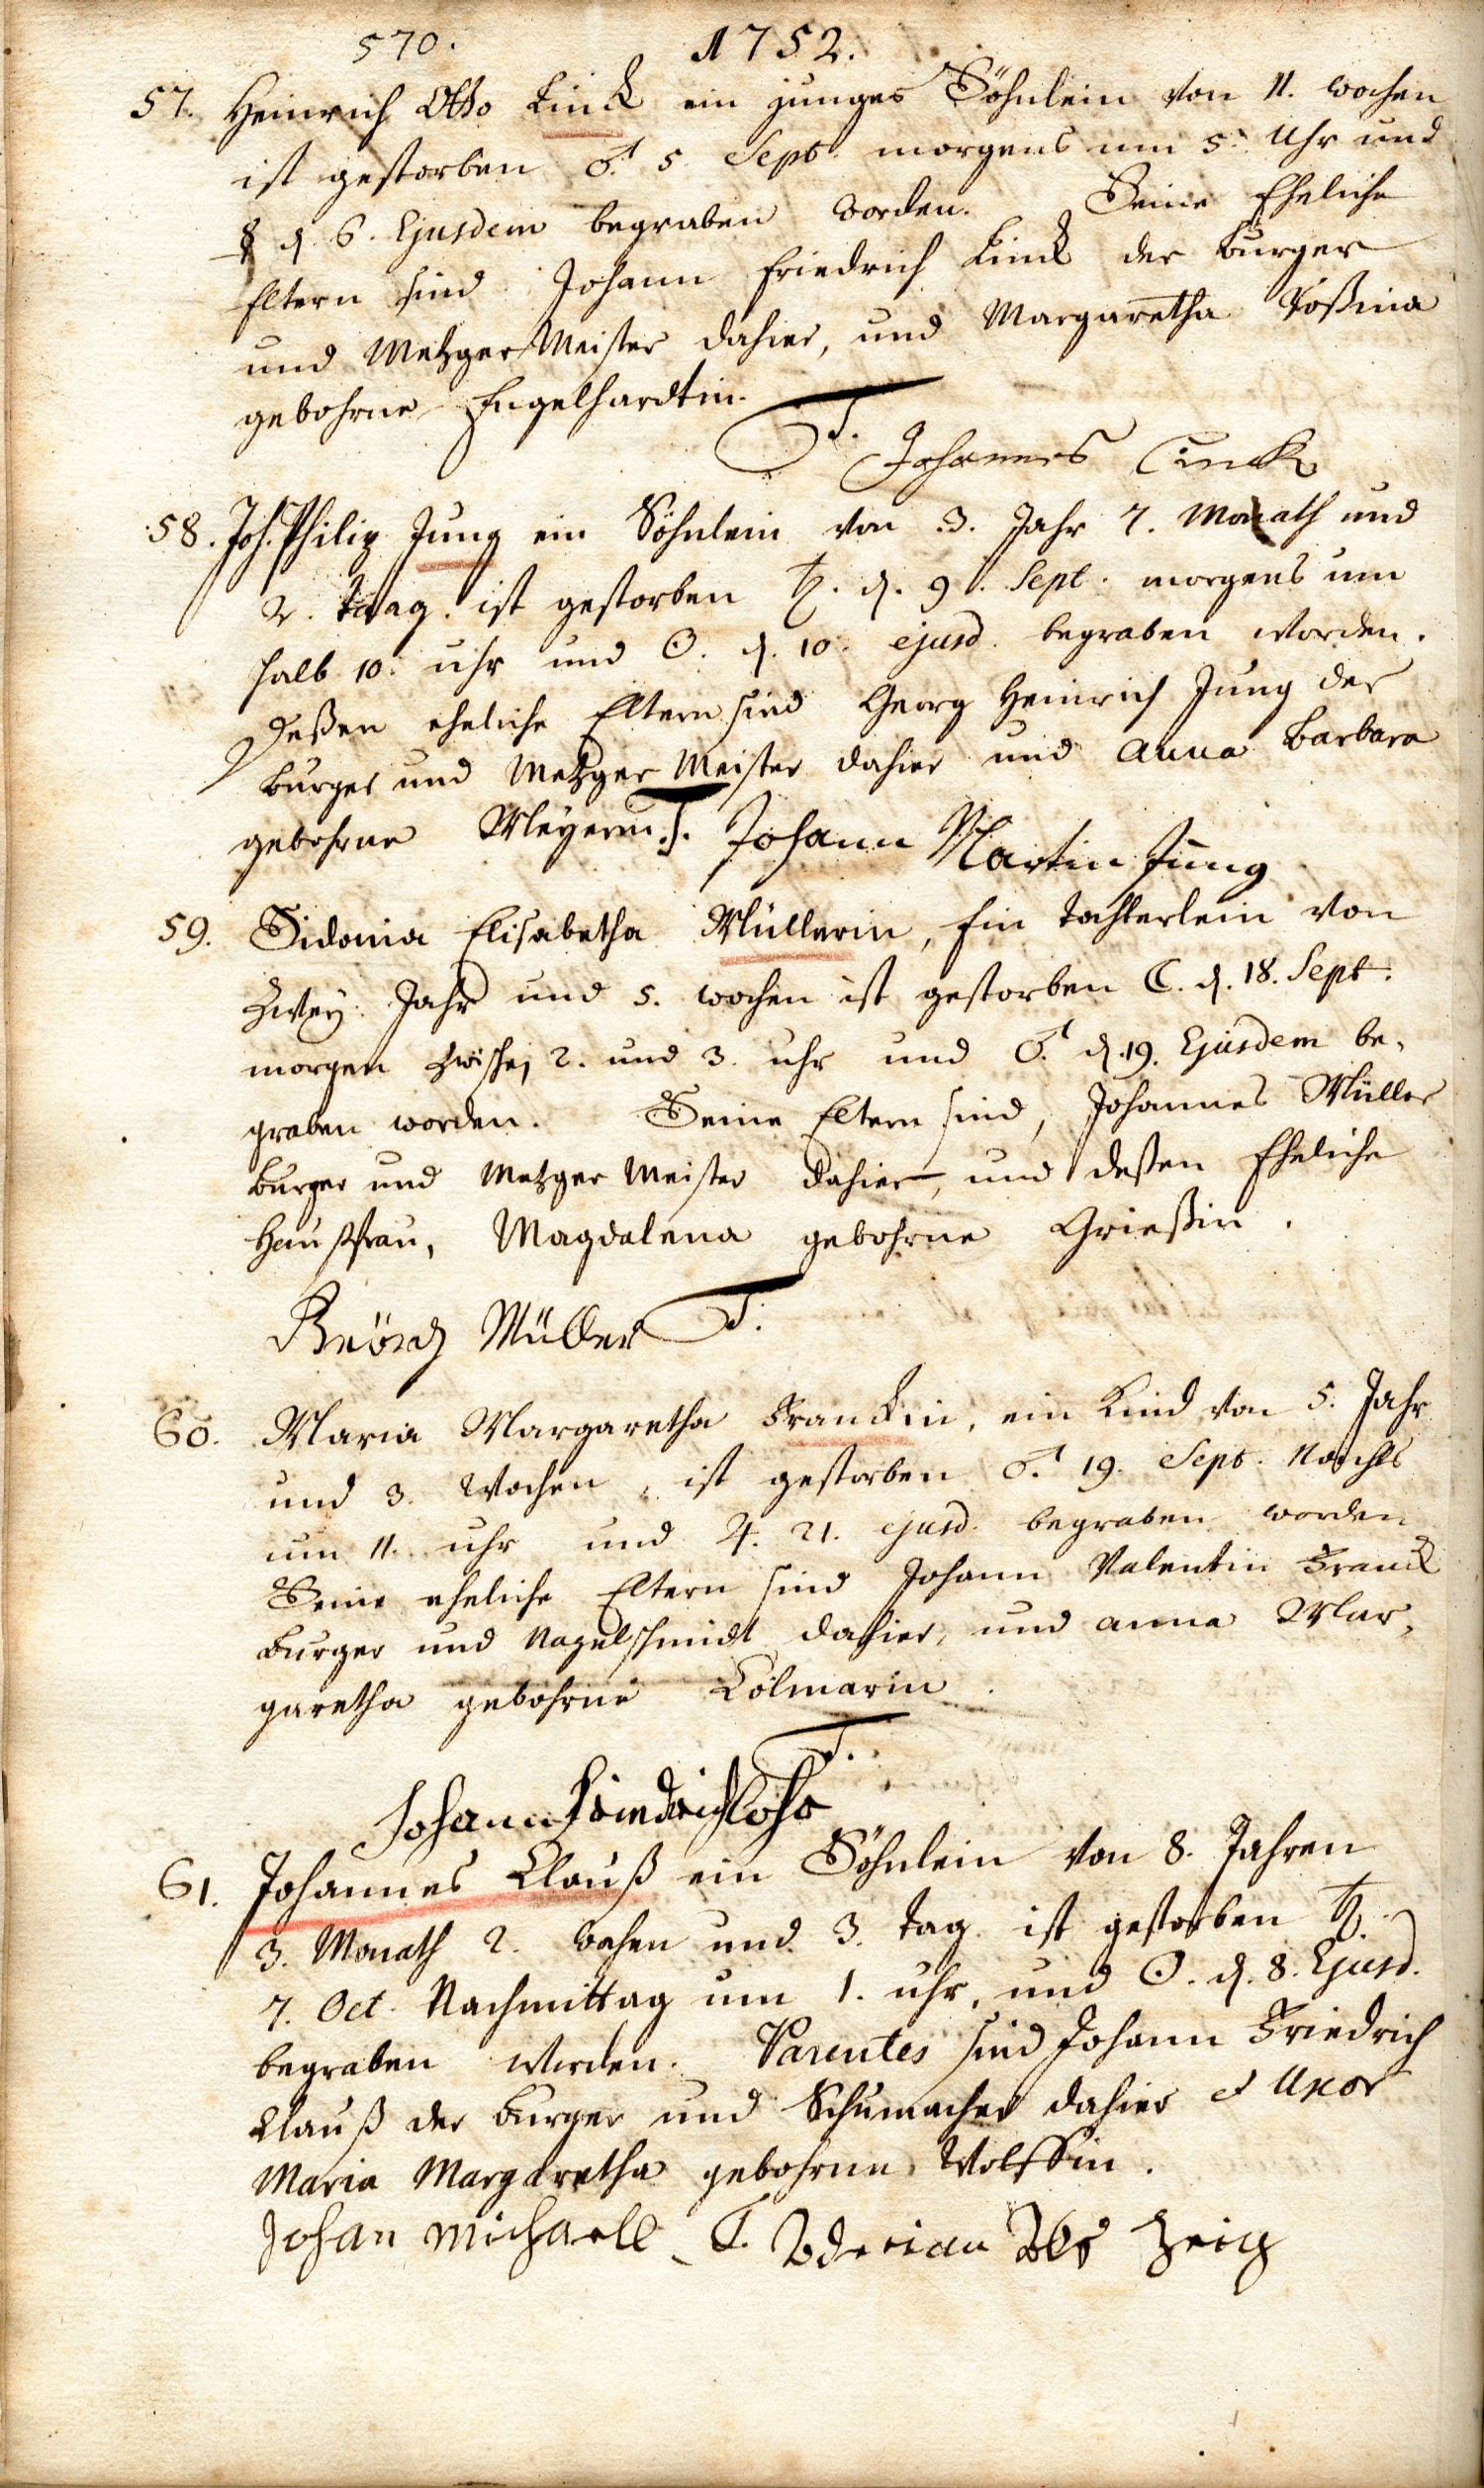 570. 1752.
57. Heinrich Otto Linck ein junges Söhnlein von 11. wochen
ist gestorben ♂. 5 Sept. morgens um 5. Uhr und
☿ d. 6. Ejusdem begraben worden. Seine Eheliche
Eltern sind Johann Friedrich Linck der burger
und Metzger Meister dahier, und Margaretha Roßina
gebohrne Engelhardtin.
T. Johannes Linck
58. Joh. Philip Jung ein Söhnlein von 3. Jahr 7. Monath und
2. taag. ist gestorben ♄. d. 9. Sept. morgens um
halb 10. uhr und ☉. d. 10. ejusd. begraben worden.
Deßen eheliche Eltern sind Georg Heinrich Jung der
burger und Metzger Meister dahier und Anna Barbara
gebohrne Meyerin. T. Johann Martin Jung
59. Sidonia Elisabetha Müllerin, Ein tochterlein von
Zwey Jahr und 5. wochen ist gestorben ☾. d. 18. Sept.
morgen zwischen 2. und 3. uhr und ♂. d. 19. Ejusdem be-
graben worden. Seine Eltern sind, Johannes Müller
burger und Metzger Meister dahier, und deßen Eheliche
Haußfrau, Magdalena gebohrne Grießin.
Müller T.
60. Maria Margaretha Franckin, ein Kind von 5. Jahr
und 3. Wochen, ist gestorben ♂. 19. Sept. Nachts
um 11. uhr und ♃. 21. ejusd. begraben worden
Seine eheliche Eltern sind Johann Valentin Franck
Burger und Nagelschmidt dahier, und anna Mar-
garetha gebohrne Colmarin.
T.
Johann Friedrich Lohr
61. Johannes Clauß ein Söhnlein von 8. Jahren
3. Monath 2. wochen und 3. tag ist gestorben ♄.
7. Oct. Nachmittag um 1. uhr, und ☉. d. 8. Ejusd.
begraben worden. Parentes sind Johann Friedrich
Clauß der burger und Schumacher dahier et Uxor
Maria Margaretha gebohrne Wolffin.
Johan Michaell T.